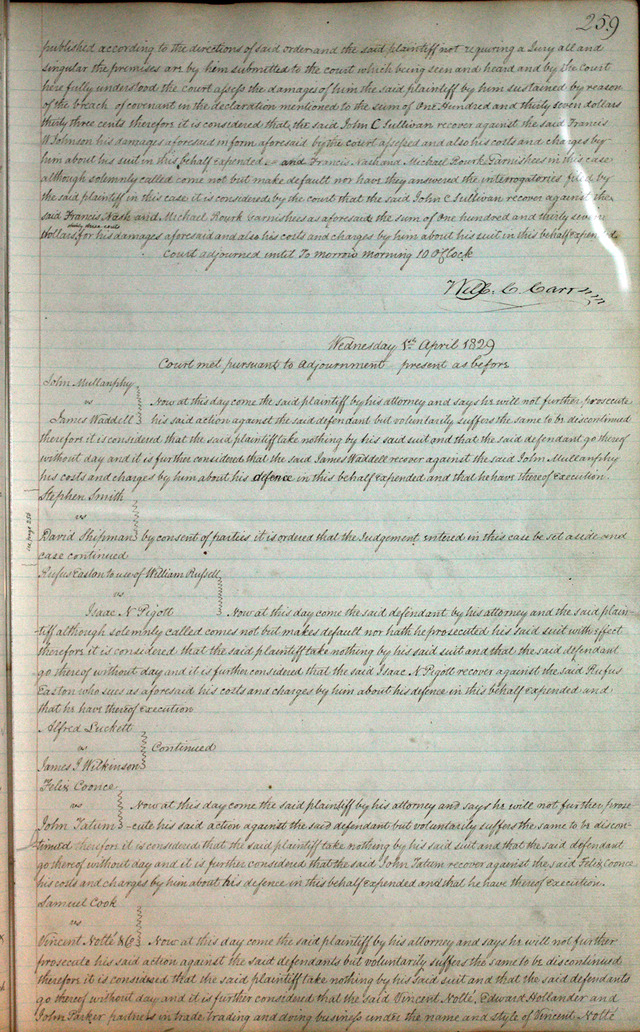 259
published according to the directions of said order and the said plaintiff not requiring a Jury all and
singular the premises are by him submitted to the court which being seen and heard and by the court
here fully understood the court assess the damages of him the said plaintiff by him sustained by reason
of the breach of covenant in the declaration mentioned to the sum of One Hundred and thirty seven dollars
thirty three cents therefore it is considered that the said John C Sullivan recover against the said Francis
W Johnson his damages aforesaid in form aforesaid by the court assessed and also his costs and charges by
him about his suit in this behalf expended and Francis Nash and Michael Rourk Garnishees in this case
although solemnly called come not but make default nor have they answered the interrogatories filed by
the said plaintiff in this case it is considered by the court that the said John C Sullivan recover against the
said Francis Nash and Michael Rourk Garnishees as aforesaid the sum of One hundred and thirty seven
thirty three cents
dollars for his damages aforesaid and also his costs and charges by him about his suit in this behalf expended
Court adjourned until To morrow morning 10 O'Clock
Will. C. Carr
Wednesday 1st April 1829
Court met pursuant to adjournment present as before
John Mullanphy
vs Now at this day come the said plaintiff by his attorney and says he will not further prosecute
James Waddell his said action against the said defendant but voluntarily suffers the same to be discontinued
therefore it is considered that the said plaintiff take nothing by his said suit and that the said defendant go thereof
without day and it is further considered that the said James Waddell recover against the said John Mullanphy
his costs and charges by him about his defence in this behalf expended and that he have thereof execution.
Stephen Smith
vs
see page 258
David Shipman by consent of parties it is ordered that the Judgement entered in this case be set aside and
case continued
Rufus Easton to use of William Russell
vs
Isaac N Pigott Now at this day come the said defendant by his attorney and the said plain-
tiff although solemnly called comes not but makes default nor hath he prosecuted his said suit with effect
therefore it is considered that the said plaintiff take nothing by his said suit and that the said defendant
go thereof without day and it is further considered that the said Isaac N Pigott recover against the said Rufus
Easton who sues as aforesaid his costs and charges by him about his defence in this behalf expended and
that he have thereof execution
Alfred Luckett
vs Continued
James J Wilkinson
Felix Coonce
vs Now at this day come the said plaintiff by his attorney and says he will not further prose
John Tatum -cute his said action against the said defendant but voluntarily suffers the same to be discon-
tinued therefore it is considered that the said plaintiff take nothing by his said suit and that the said defendant
go thereof without day and it is further considered that the said John Tatum recover against the said Felix Coonce
his costs and charges by him about his defence in this behalf expended and that he have thereof execution.
Samuel Cook
vs
Vincent Nolté & Co Now at this day come the said plaintiff by his attorney and says he will not further
prosecute his said action against the said defendants but voluntarily suffers the same to be discontinued
therefore it is considered that the said plaintiff take nothing by his said suit and that the said defendants
go thereof without day and it is further considered that the said Vincent Nolté, Edward Hollander and
John Parker partners in trade trading and doing business under the name and style of Vincent Nolté